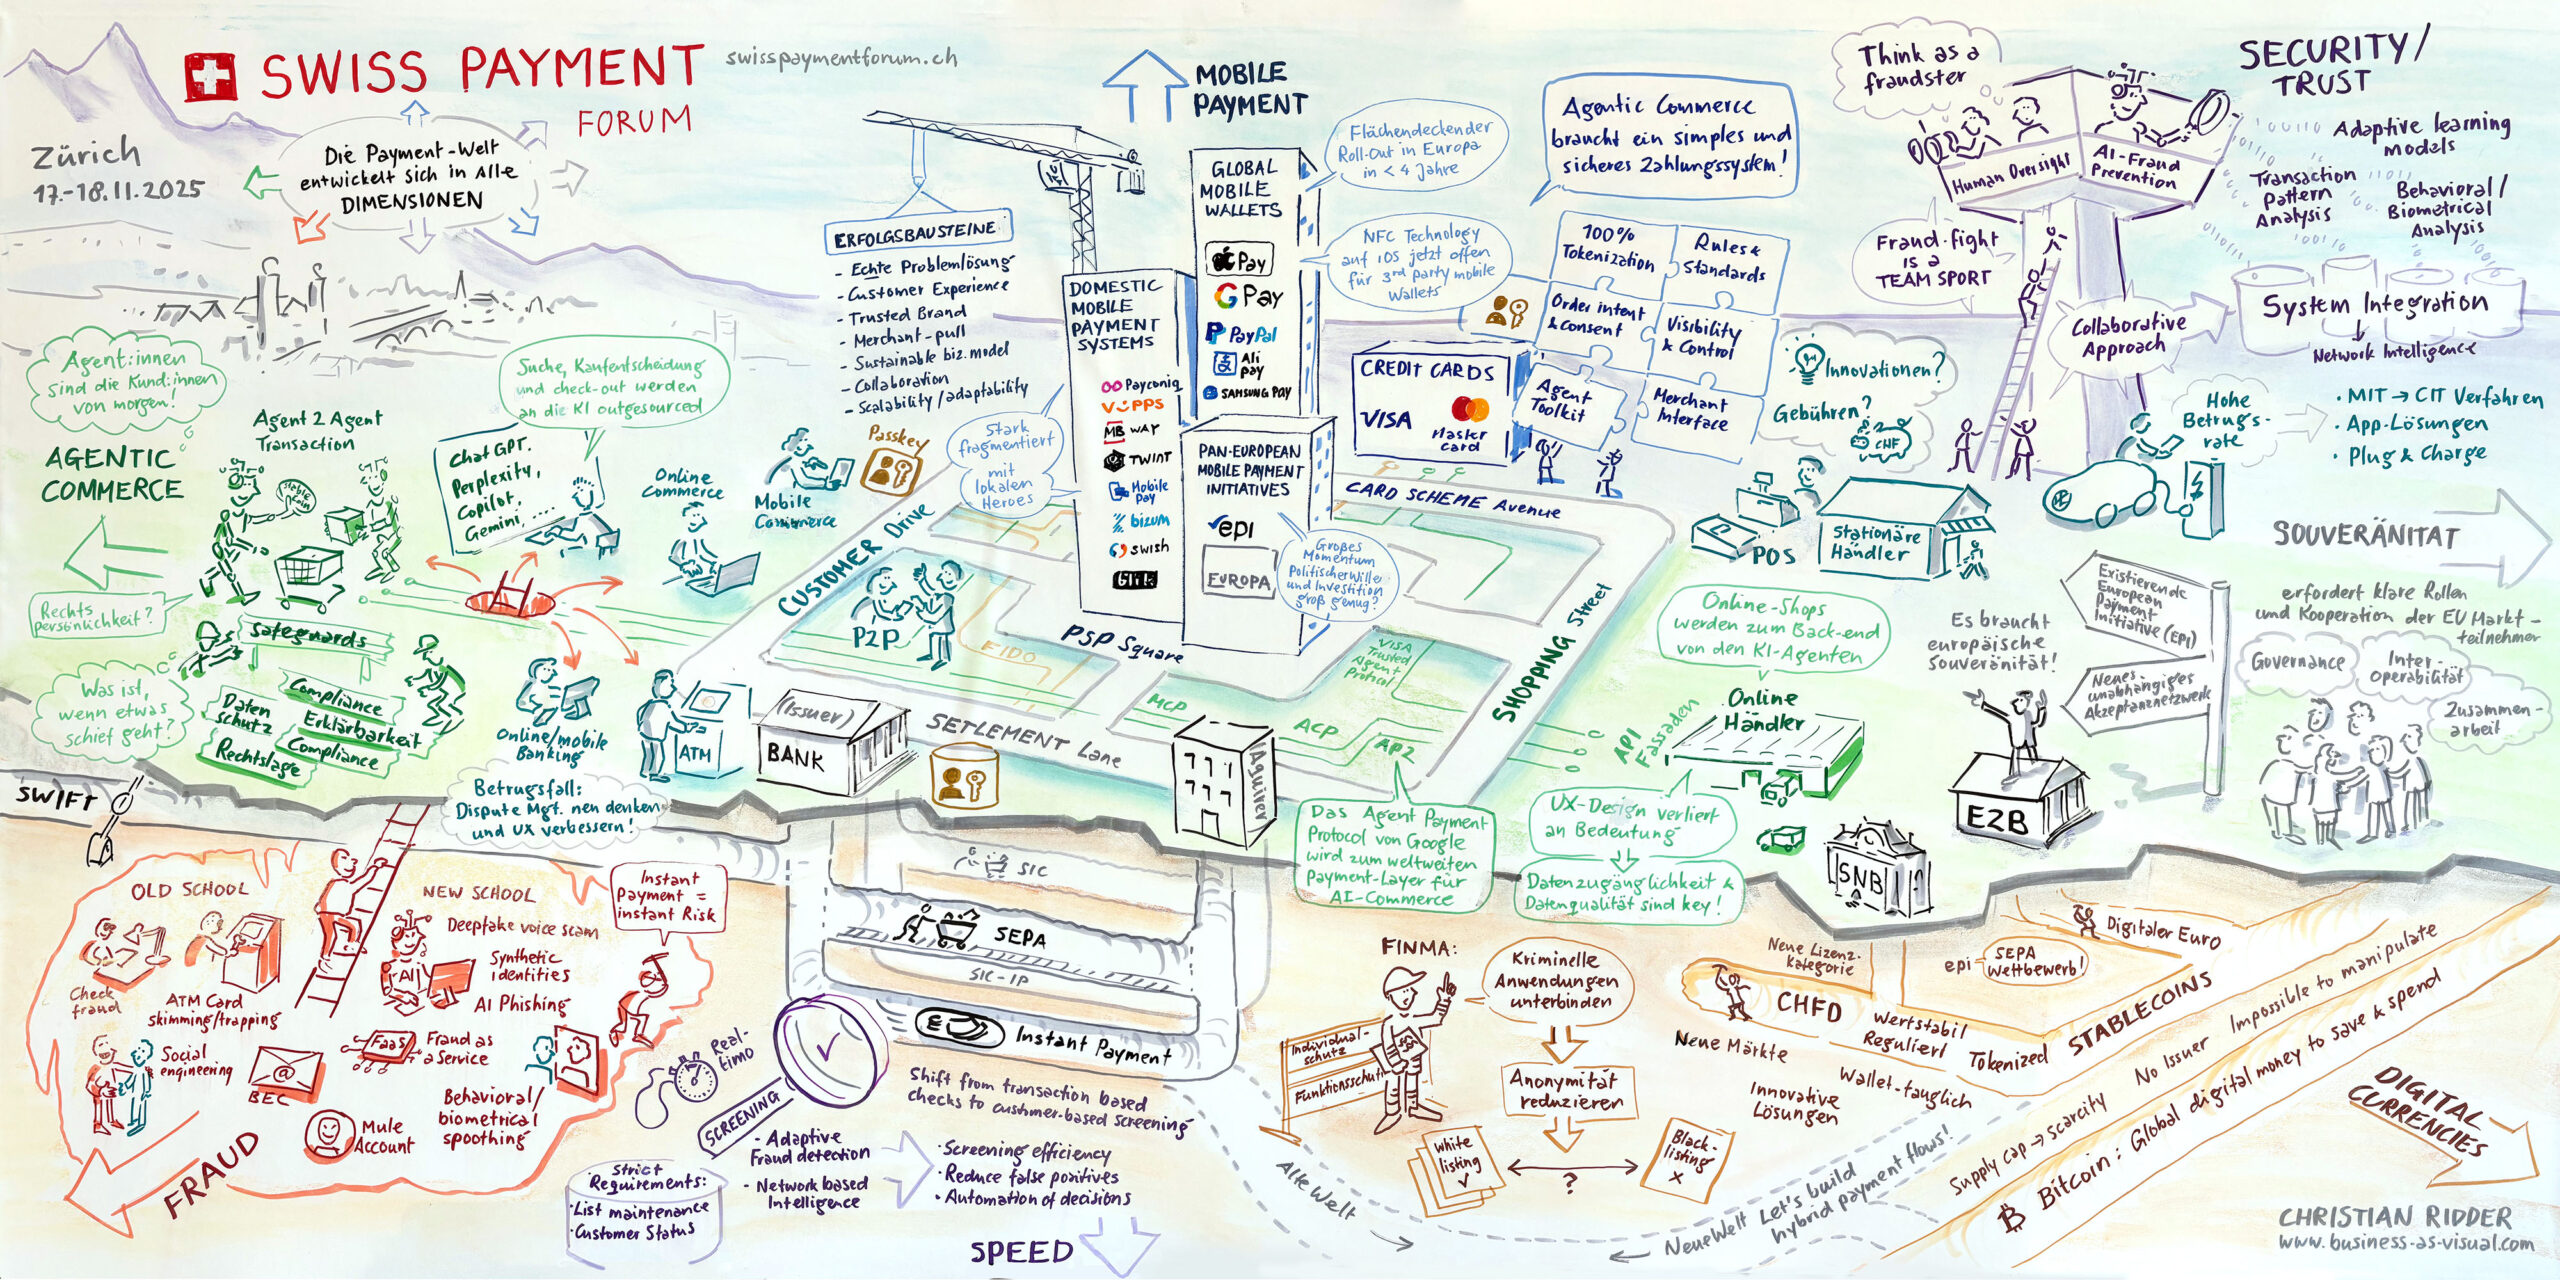 SWISS PAYMENT
FORUM
swisspaymentforum.ch
Zürich
17.-18.11.2025
Die Payment-Welt
entwickelt sich in alle
DIMENSIONEN
MOBILE
PAYMENT
ERFOLGSBAUSTEINE
- Echte Problemlösung
- Customer Experience
- Trusted Brand
- Merchant-pull
- Sustainable biz. model
- Collaboration
- Scalability/adaptability
Stark
fragmentiert
mit
lokalen
Heroes
DOMESTIC
MOBILE
PAYMENT
SYSTEMS
Payconiq
VIPPS
MB WAY
TWINT
Mobile
Pay
bizum
swish
GLOBAL
MOBILE
WALLETS
Pay
G Pay
PayPal
Ali
pay
SAMSUNG Pay
PAN-EUROPEAN
MOBILE PAYMENT
INITIATIVES
epi
EUROPA
Großes
Momentum
Politischer Wille
und Investition
groß genug?
Flächendeckender
Roll-Out in Europa
in < 4 Jahre
NFC Technology
auf iOS jetzt offen
für 3rd party mobile
Wallets
Agentic Commerce
braucht ein simples und
sicheres Zahlungssystem!
100%
Tokenization
Rules &
Standards
Order intent
& consent
Visibility
& Control
Agent
Toolkit
Merchant
Interface
CREDIT CARDS
VISA
Master
card
CARD SCHEME Avenue
Think as a
fraudster
Human Oversight
AI-Fraud
Prevention
Fraud-fight
is a
TEAM SPORT
Collaborative
Approach
SECURITY/
TRUST
Adaptive learning
models
Transaction
Pattern
Analysis
Behavioral/
Biometrical
Analysis
System Integration
Network Intelligence
Hohe
Betrugs-
rate
• MIT → CIT Verfahren
• App-Lösungen
• Plug & Charge
Innovationen?
Gebühren?
CHF
POS
Stationäre
Händler
Agent:innen
sind die Kund:innen
von morgen!
AGENTIC
COMMERCE
Agent 2 Agent
Transaction
Stable
Coin
Suche, Kaufentscheidung
und check-out werden
an die KI outgesourced
Chat GPT.
Perplexity,
Copilot,
Gemini, ....
Rechts
persönlichkeit?
Safeguards
Was ist,
wenn etwas
schief geht?
Daten
schutz
Rechtslage
Compliance
Erklärbarkeit
Compliance
Online
Commerce
Mobile
Commerce
Passkey
Online/mobile
Banking
ATM
Betrugsfall:
Dispute Mgt. neu denken
und UX verbessern!
CUSTOMER DRIVE
P2P
FIDO
PSP Square
(Issuer)
BANK
SETLEMENT Lane
Aquirer
MCP
ACP
AP2
VISA
Trusted
Agent
Protocol
SHOPPING Street
Das Agent Payment
Protocol von Google
wird zum weltweiten
Payment-Layer für
AI-Commerce
Online-Shops
werden zum Back-end
von den KI-Agenten
API
Fassaden
Online
Händler
UX-Design verliert
an Bedeutung
Datenzugänglichkeit &
Datenqualität sind key!
Es braucht
europäische
Souveränität!
Existierende
European
Payment
Initiative (EPI)
Neues
unabhängiges
Akzeptanznetzwerk
E2B
SNB
SOUVERÄNITÄT
erfordert klare Rollen
und Kooperation der EU Markt-
teilnehmer
Governance
Inter-
operabilität
Zusammen-
arbeit
SWIFT
OLD SCHOOL
Check
fraud
ATM Card
skimming/trapping
Social
engineering
BEC
Mule
Account
NEW SCHOOL
Deepfake voice scam
AI
Synthetic
identities
AI Phishing
FaaS
Fraud as
a Service
Behavioral/
biometrical
spoothing
Instant
Payment =
instant Risk
FRAUD
SIC
SEPA
SIC-IP
Instant Payment
Real-
time
SCREENING
Shift from transaction based
checks to custmer-based screening
Strict
Requirements:
• List maintenance
• Customer Status
- Adaptive
Fraud detection
- Network based
Intelligence
• Screening efficiency
• Reduce false positives
• Automation of decisions
SPEED
FINMA:
Individual-
schutz
Funktionsschutz
Kriminelle
Anwendungen
unterbinden
Anonymität
reduzieren
White
listing
?
Black-
listing
Alte Welt
Neue Welt
Let's build
hybrid payment flows!
Neue Lizenz-
kategorie
CHFD
Neue Märkte
Wertstabil
Reguliert
Tokenized
Wallet-tauglich
Innovative
Lösungen
STABLECOINS
epi
SEPA
Wettbewerb!
Digitaler Euro
Supply cap → scarcity
No Issuer
Impossible to manipulate
Bitcoin: Global digital money to save & spend
DIGITAL
CURRENCIES
CHRISTIAN RIDDER
www.business-as-visual.com